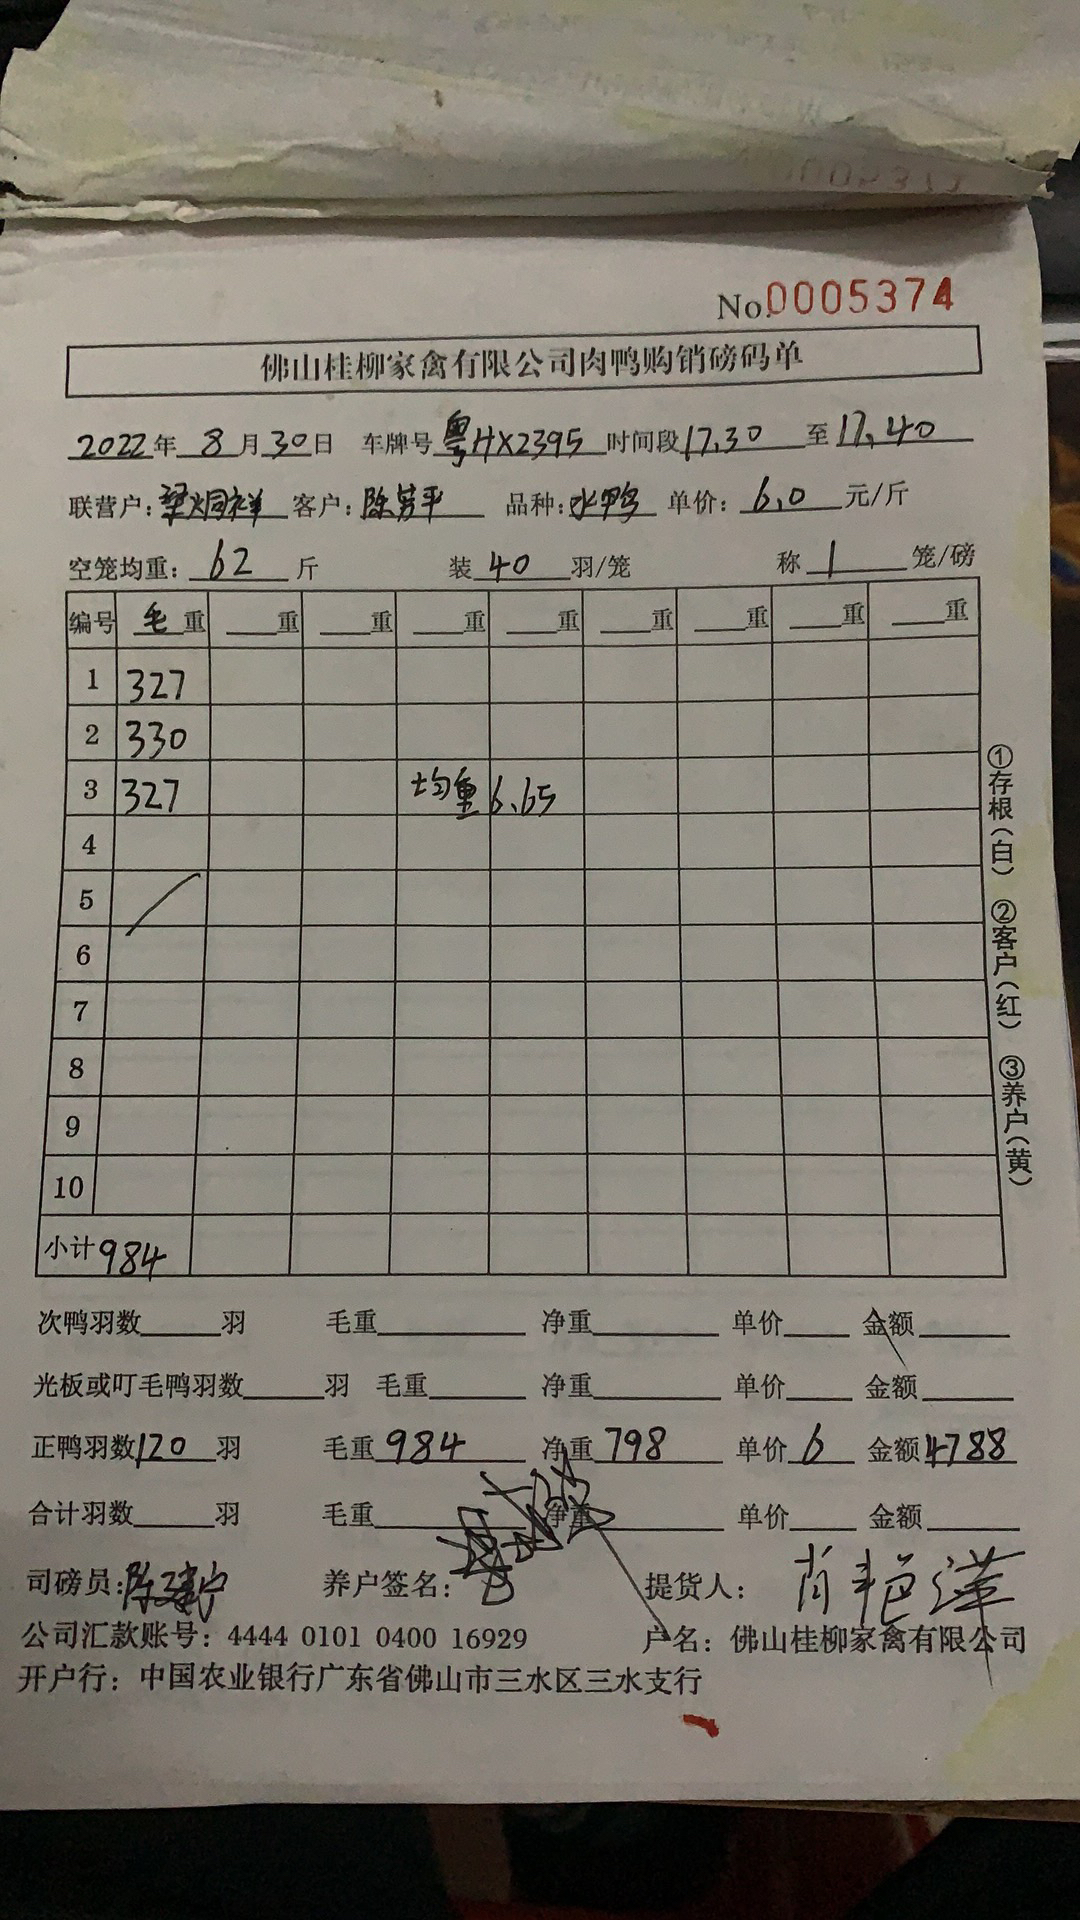 No.0005374
佛山桂柳家禽有限公司肉鸭购销磅码单
2022年 8月30日 车牌号 粤HX2395 时间段 17,30 至 17,40
联营户: 梁炯祥 客户: 陈芳平 品种: 水鸭 单价: 6.0 元/斤
空笼均重: 62 斤 装 40 羽/笼 称 1 笼/磅
编号 毛重 重 重 重 重 重 重 重 重
1 327
2 330
3 327 均重 6.65
4
5
6
7
8
9
10
小计 984
①存根(白) ②客户(红) ③养户(黄)
次鸭羽数 羽 毛重 净重 单价 金额
光板或叮毛鸭羽数 羽 毛重 净重 单价 金额
正鸭羽数 120 羽 毛重 984 净重 798 单价 6 金额 4788
合计羽数 羽 毛重 净重 单价 金额
司磅员: 陈建宁 养户签名: 提货人: 肖艳洋
公司汇款账号: 4444 0101 0400 16929 户名: 佛山桂柳家禽有限公司
开户行: 中国农业银行广东省佛山市三水区三水支行